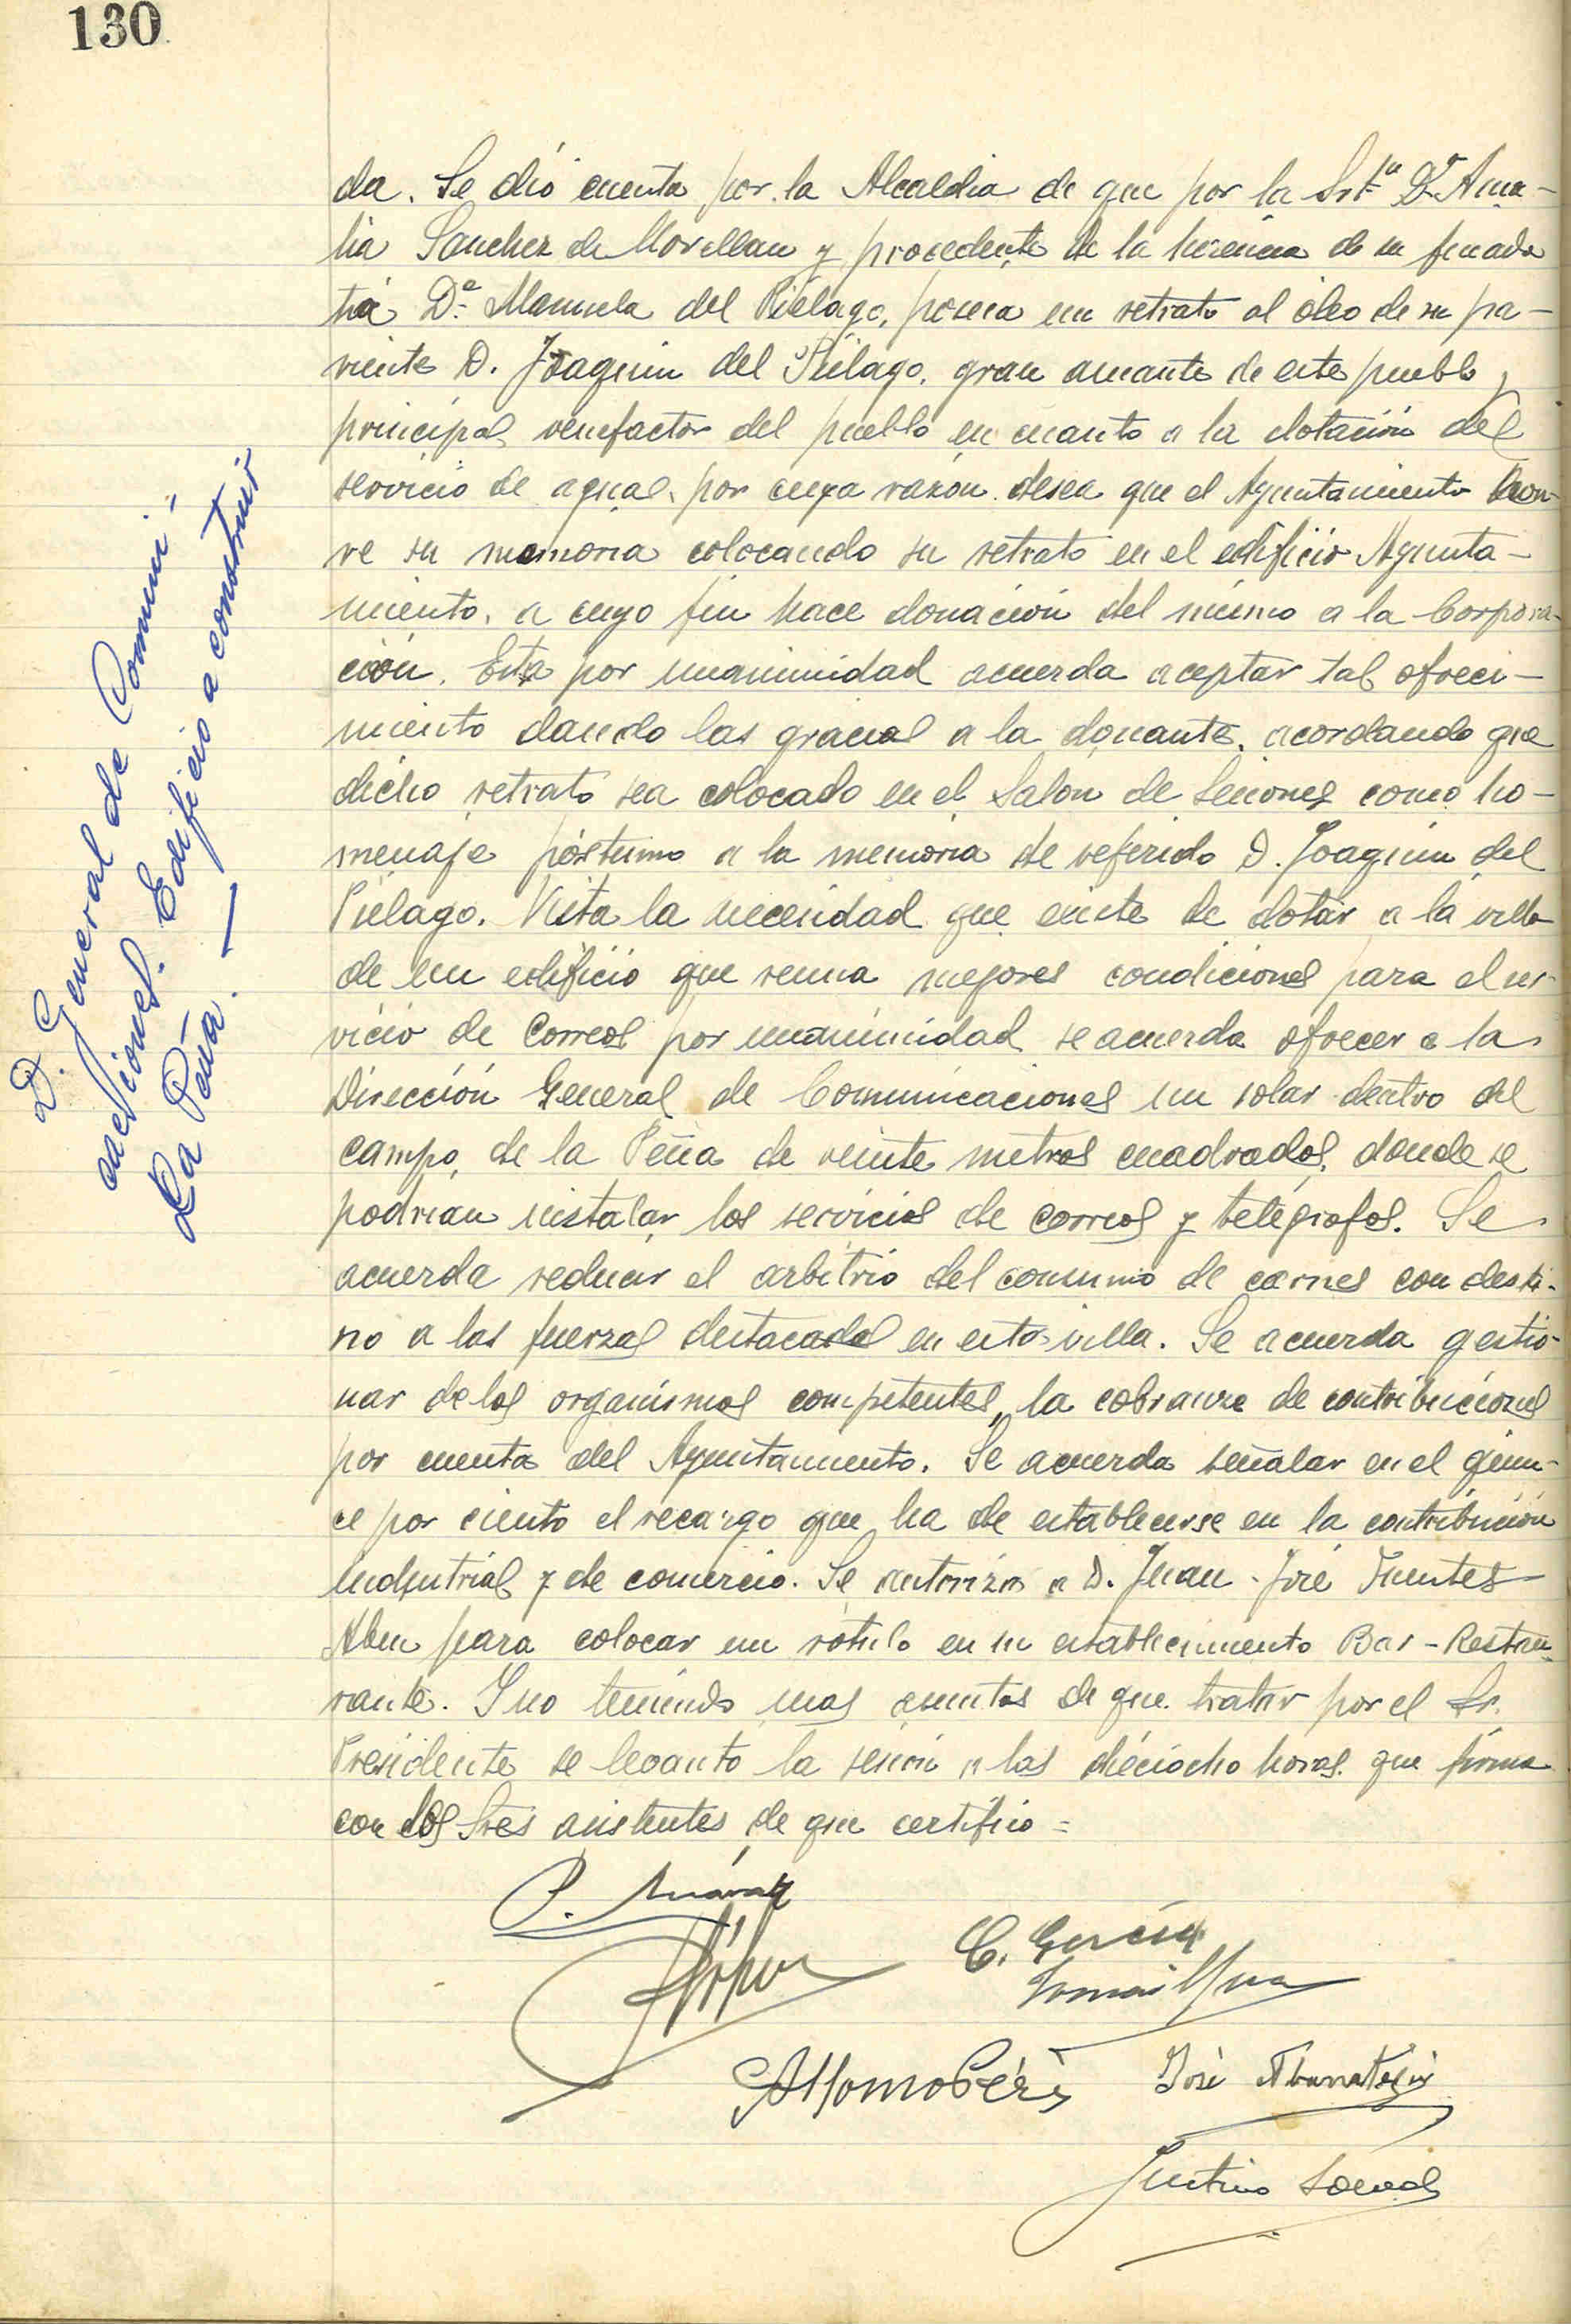 130
da. Se dió cuenta por la Alcaldia de que por la Srtª Dª Ama-
lia Sanchez de Movellan y procedente de la herencia de su finada
tia Dª Manuela del Piélago, poseia un retrato al óleo de su pa-
riente D. Joaquin del Piélago, gran amante de este pueblo y
principal venefactor del pueblo en cuanto a la dotación del
servicio de aguas, por cuya razón desea que el Ayuntamiento hon-
re su memoria colocando su retrato en el edificio Ayunta-
miento, a cuyo fin hace donación del mismo a la Corpora-
ción. Esta por unanimidad acuerda aceptar tal ofreci-
miento dando las gracias a la donante, acordando que
dicho retrato sea colocado en el Salon de Sesiones como ho-
menaje póstumo a la memoria de referido D. Joaquin del
Piélago. Vista la necesidad que existe de dotar a la villa
de un edificio que reuna mejores condiciones para el ser-
vicio de Correos por unanimidad se acuerda ofrecer a la
Dirección General de Comunicaciones un solar dentro del
campo de la Peña de veinte metros cuadrados, donde se
podrian instalar los servicios de correos y telégrafos. Se
acuerda reducir el arbitrio del consumo de carnes con desti-
no a las fuerzas destacadas en esta villa. Se acuerda gestio-
nar de los organismos competentes, la cobranza de contribuciones
por cuenta del Ayuntamiento. Se acuerda señalar en el quin-
ce por ciento el recargo que ha de establecerse en la contribución
industrial y de comercio. Se autoriza a D. Juan José Fuentes
para colocar un rótulo en su establecimiento Bar-Restau-
rante. Y no teniendo mas asuntos de que tratar por el Sr.
Presidente se levanto la sesión a las dieciocho horas que firma
con los Sres asistentes de que certifico =
D. General de Comuni-
caciones. Edificio a construir
La Peña.
P.
C. García
Tomás
José
Justino